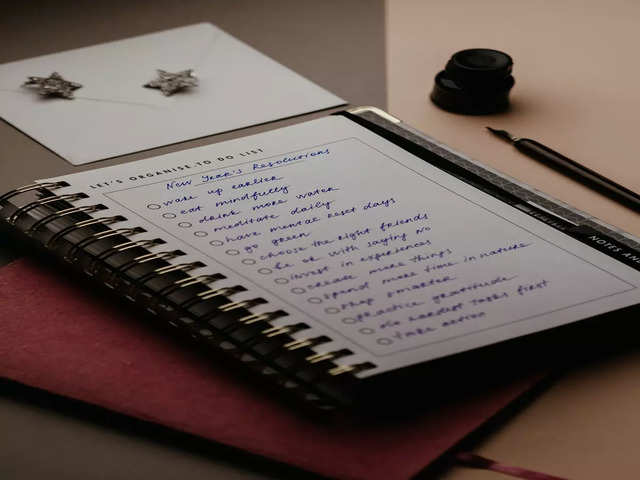 LET'S ORGANISE TO DO LIST
New Year's Resolutions
wake up earlier
eat mindfully
drink more water
meditate daily
have mental reset days
go green
choose the right friends
be ok with saying no
invest in experiences
create more things
spend more time in nature
shop smarter
practice gratitude
do hardest tasks first
take action
NOTES AND